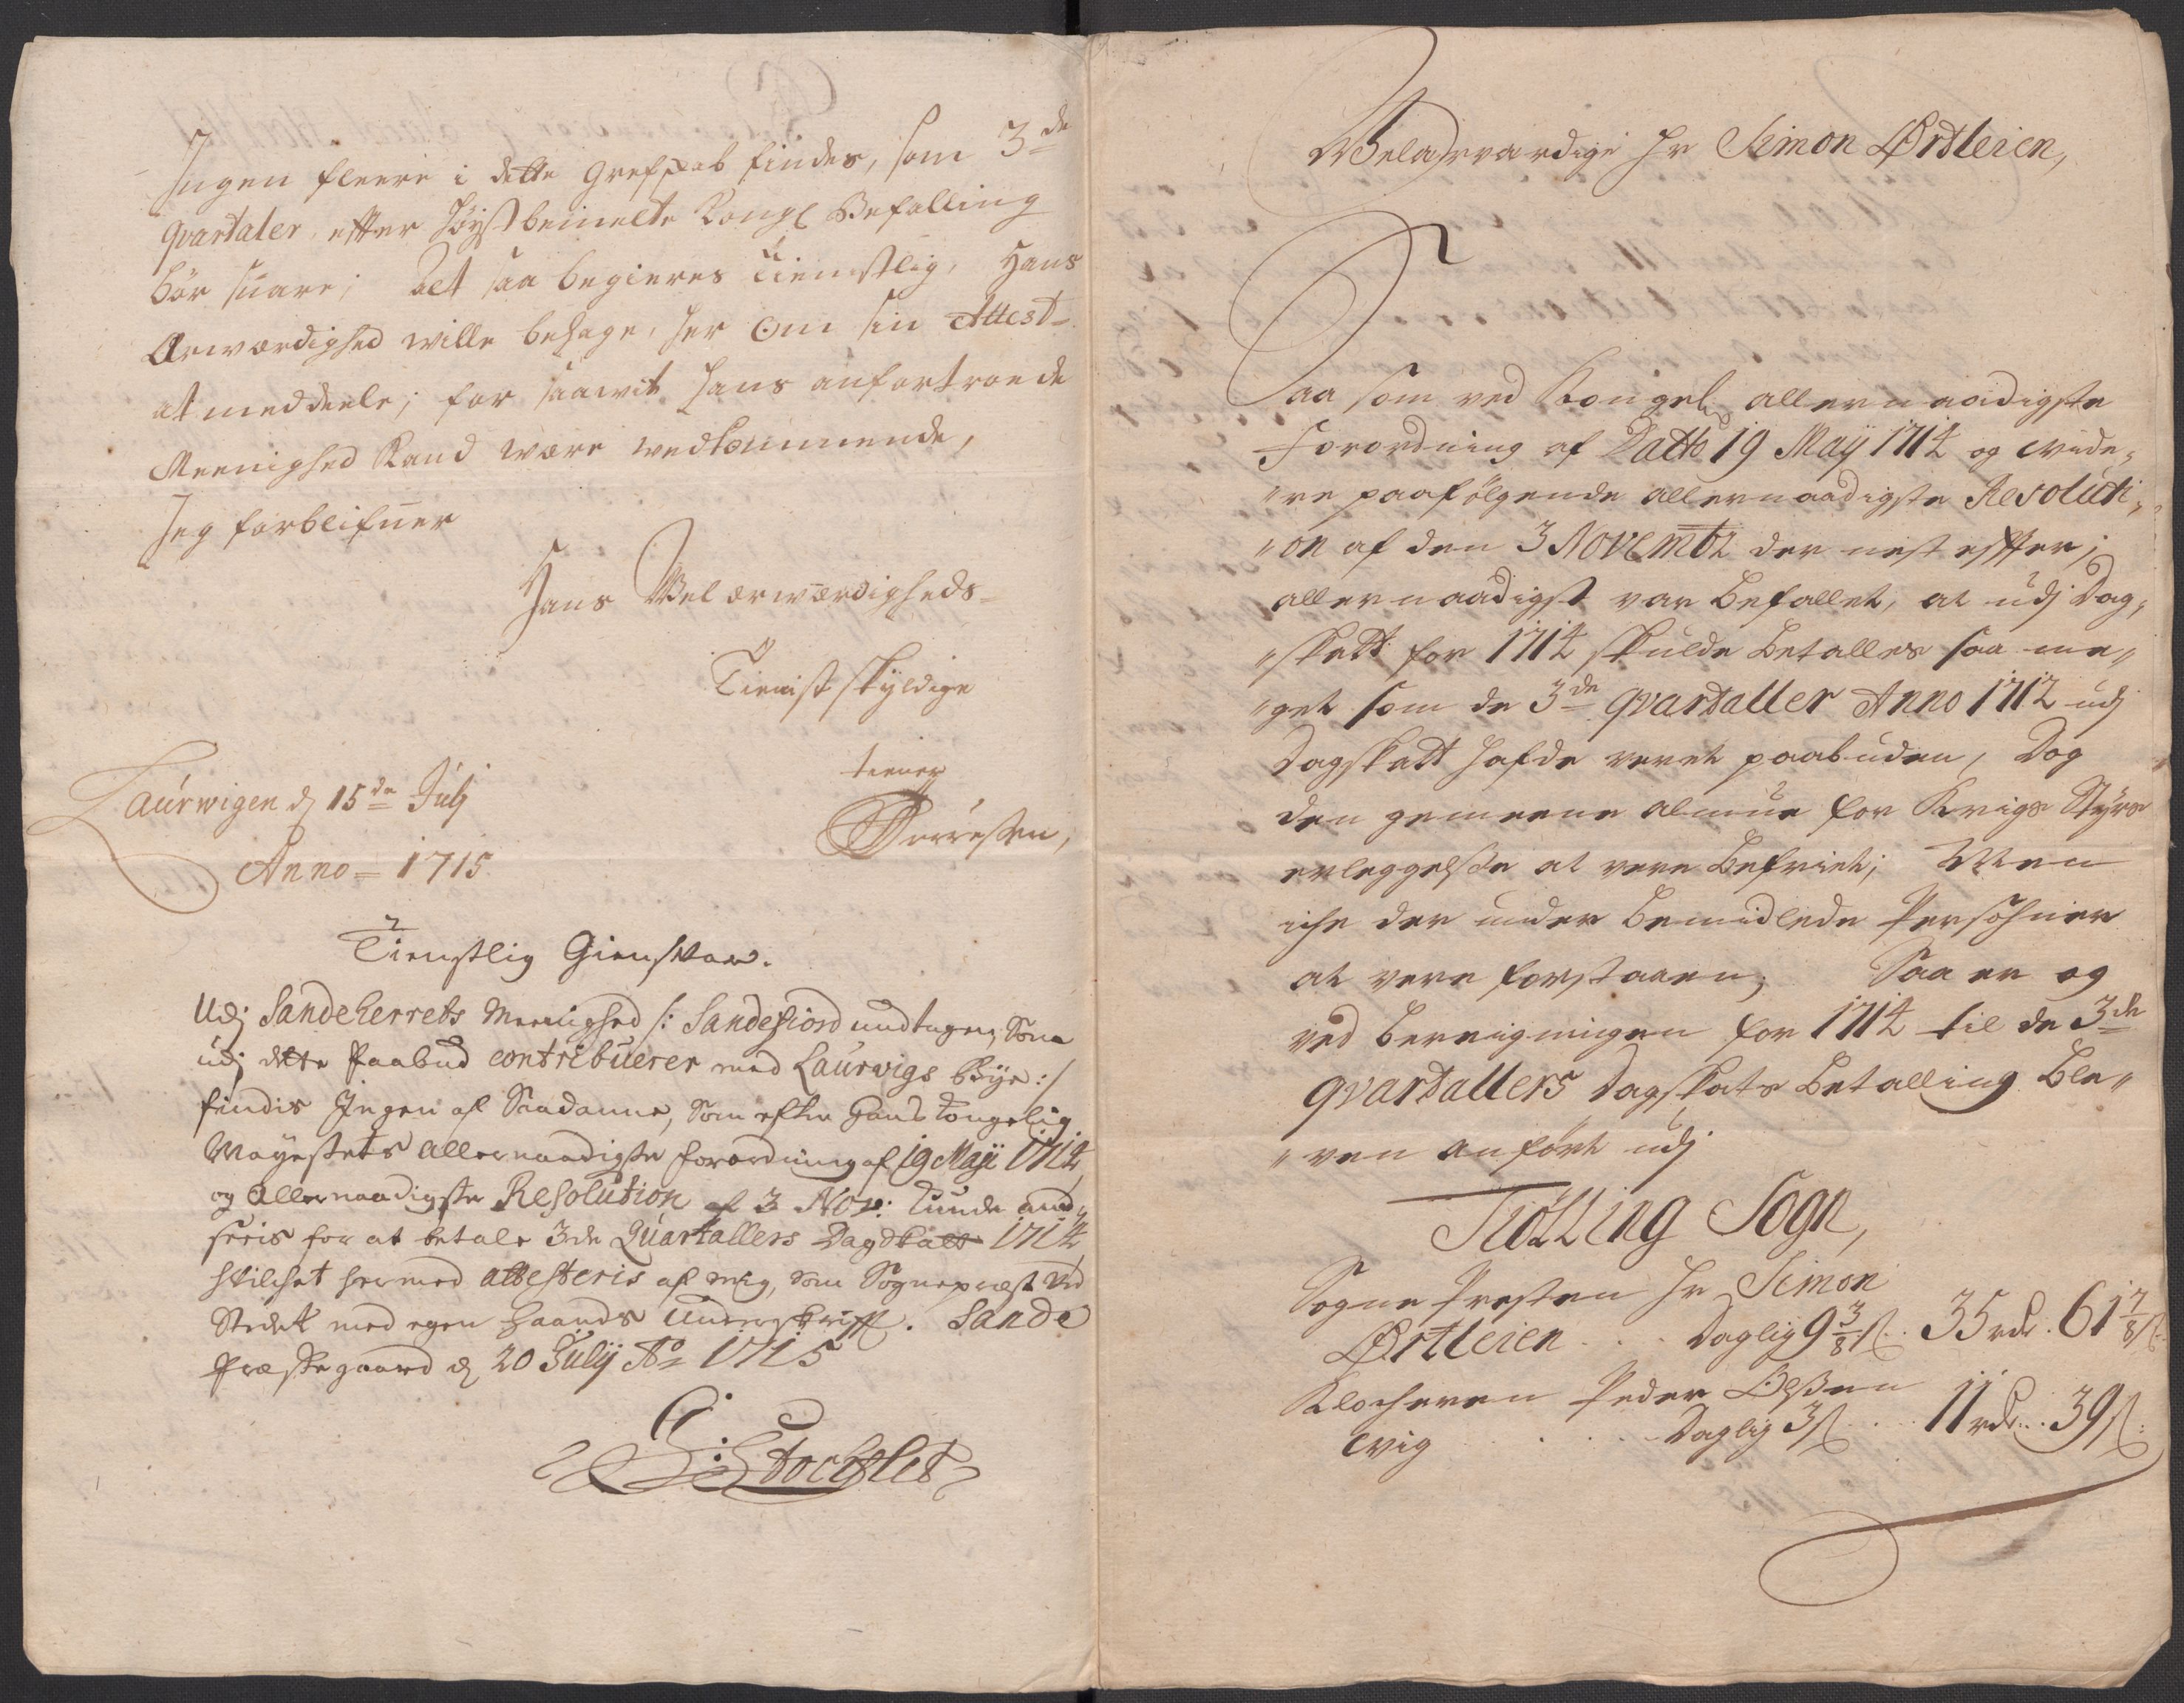 Ingen fleere i dette Grefskab findes, som 3de
qvartaler efter høystbemelte Kongl Befalling
bør suare; alt saa begieres tienstlig, Hans
Ærwærdighed wille behage, her om sin Attest
at meddeele; for saawit hans anfortroede
Meenighed Kand være wedkommende,
Jeg forblifuer
Hans Wel ærwærdigheds
Tienistskyldige
tiener
Laurwigen d 15de Julj
Anno = 1715
Tienstlig Giensvar.
Udj Sandeherrets Meenighed /: Sandefiord undtagen, som
udj dette Paabud contribuerer med Laurwigs Bye :/
findis Ingen af Saadanne, som efter Hans Kongelig
Mayestets allernaadigste forordning af 19 Maji 1714
og Allernaadigste Resolution af 3 Nov: kunde and„
seeis for at betale 3de Quartallers Dagskatt 1714
hvilchet hermed attesteris af mig, som Sognepræst ved
Stedet med egen haands underskrifft. Sande
Præstegaard d 20 Julij Ao 1715
G: Stockflet
Welærværdige Hr Simon Ørtleien,
Saa som ved Kongel allernaadigste
Forordning af Dato 19 Maij 1714 og vide„
„re paafølgende allernaadigste Resoluti„
„on af den 3 Novembr der nest efter;
allernaadigst var befallet, at udj Dag„
„skatt for 1714 skulde betalles saa me„
„get som de 3de qvartaller Anno 1712 udj
Dagskatt hafde veret paabuden, Dog
den gemeene almue for Krigs Styrs
erleggelse at vere befriet; Men
iche der under bemidlede Persohner
at vere forstaaen, Saa er og
ved bereigningen for 1714 til de 3de
qvartallers Dagskats betalling ble„
„ven anført udj
Tiølling Sogn,
Sogne Presten Hr Simon
Ørtleien . . . Daglig 9 3/8 s . . 35 rdr . 61 7/8 s
Klocheren Peder Olsen
Daglig 3 s . . . 11 rdr . . 39 s